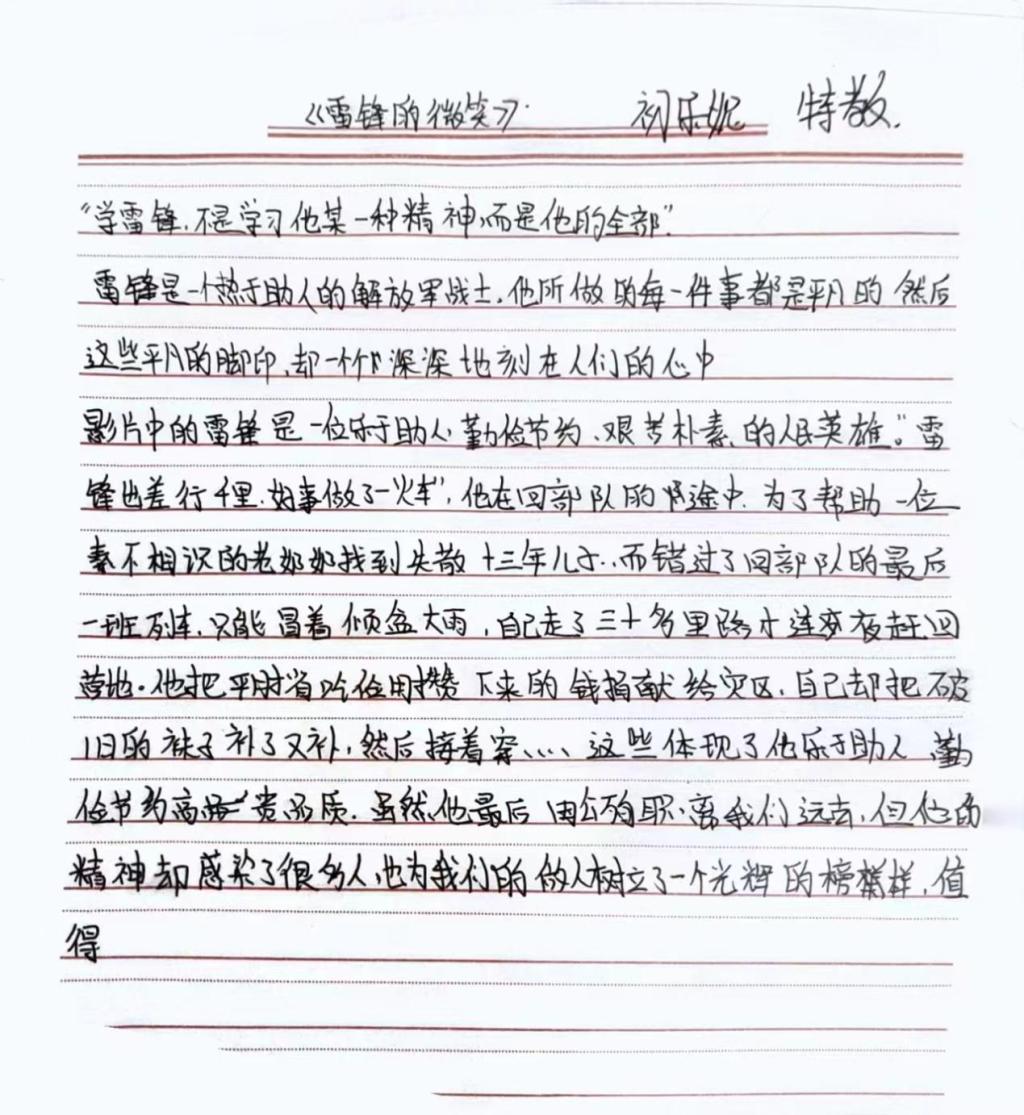 《雷锋的微笑》. 初乐妮 特教.
“学雷锋,不是学习他某一种精神,而是他的全部”
雷锋是一个热于助人的解放军战士,他所做的每一件事都是平凡的 然后
这些平凡的脚印,却一个个深深地刻在人们的心中
影片中的雷锋是一位乐于助人、勤俭节约、艰苦朴素的人民英雄。“雷
锋出差行千里,好事做了一火车”,他在回部队的归途中,为了帮助一位
素不相识的老奶奶找到失散十三年儿子,而错过了回部队的最后
一班列车,只能冒着倾盆大雨,自己走了三十多里路才连夜赶回
营地。他把平时省吃俭用攒下来的钱捐献给灾区,自己却把破
旧的袜子补了又补,然后接着穿、、、、这些体现了他乐于助人 勤
俭节约高贵品质。虽然他最后因公殉职,离我们远去,但他的
精神却感染了很多人,也为我们的做人树立了一个光辉的榜样,值
得